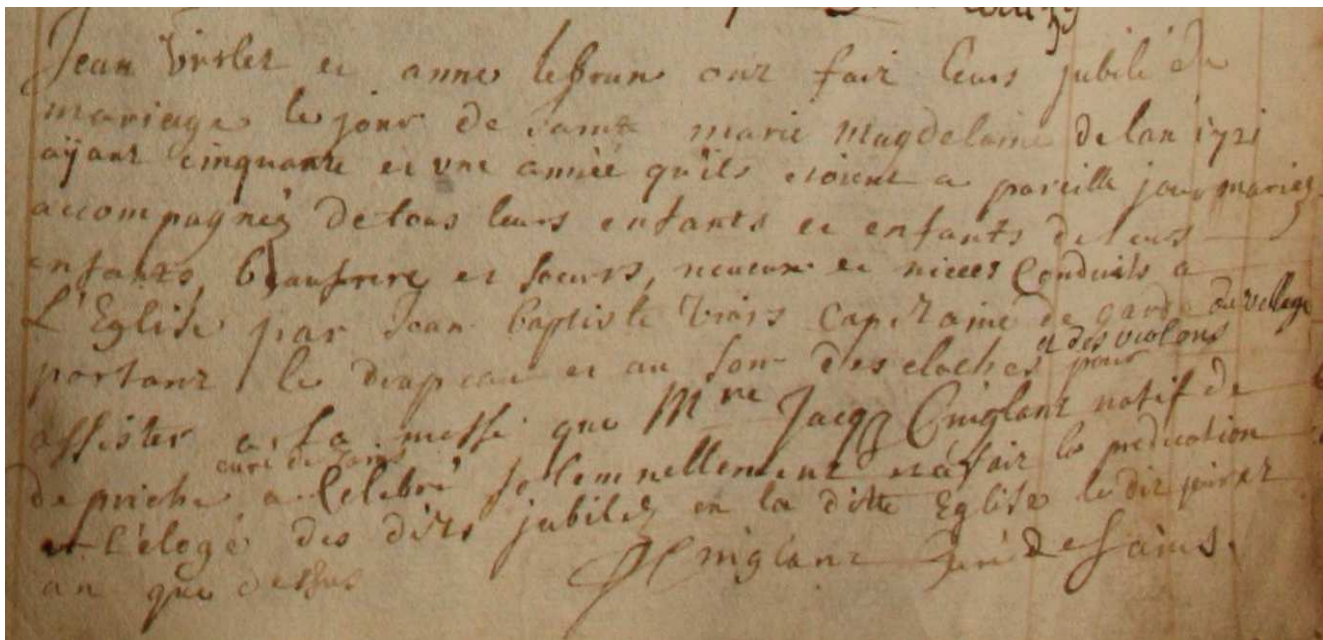 Jean Virlez et anne lebrun ont fait leurs jubilé de
mariage le jour de sainte marie magdelaine de lan 1721
aÿant cinquante et une année qu'ils etoient a pareille jour mariez
accompagnéz de tous leurs enfants et enfants de leurs
enfants, beaufrere et soeurs, neueux et nieces Conduits a
L'Eglise par Jean baptiste Capitaine de garde du village
portant le drapeau et au son des cloches et des violons pour
assister a la messe que Mre Jacq natif de
de priche curé de sains a Celebré solemnellement et a fait la predication
et L'éloge des dits jubiléz en la ditte Eglise le dit jour et
an que dessus curé de sains.